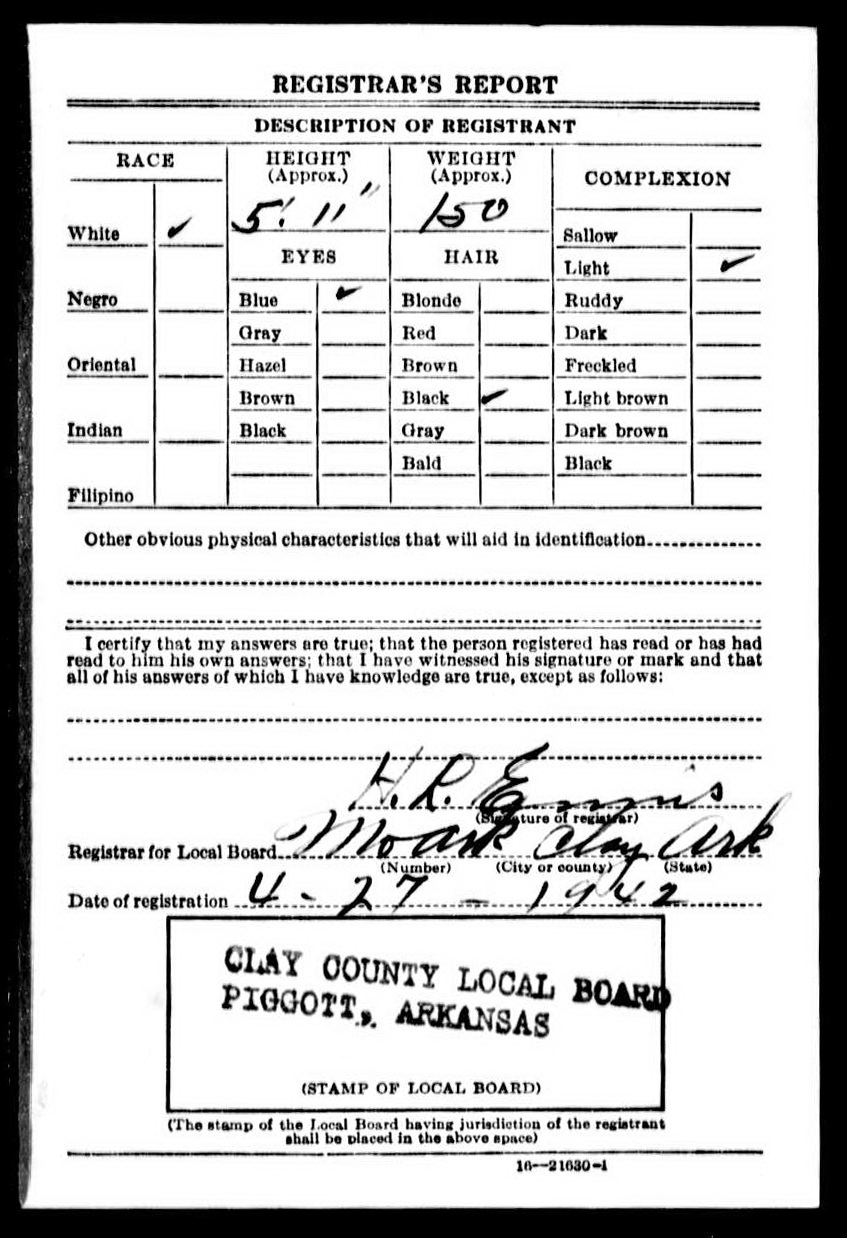 REGISTRAR'S REPORT
DESCRIPTION OF REGISTRANT
RACE
HEIGHT
(Approx.)
WEIGHT
(Approx.)
COMPLEXION
5' 11"
150
White ✓
Sallow
EYES
HAIR
Light ✓
Negro
Blue ✓
Blonde
Ruddy
Gray
Red
Dark
Oriental
Hazel
Brown
Freckled
Brown
Black ✓
Light brown
Indian
Black
Gray
Dark brown
Bald
Black
Filipino
Other obvious physical characteristics that will aid in identification
I certify that my answers are true; that the person registered has read or has had
read to him his own answers; that I have witnessed his signature or mark and that
all of his answers of which I have knowledge are true, except as follows:
H. R. Ennis
(Signature of registrar)
Registrar for Local Board Moark Clay Ark
(Number) (City or county) (State)
Date of registration 4 - 27 - 1942
CLAY COUNTY LOCAL BOARD
PIGGOTT, ARKANSAS
(STAMP OF LOCAL BOARD)
(The stamp of the Local Board having jurisdiction of the registrant
shall be placed in the above space)
16—21630-1